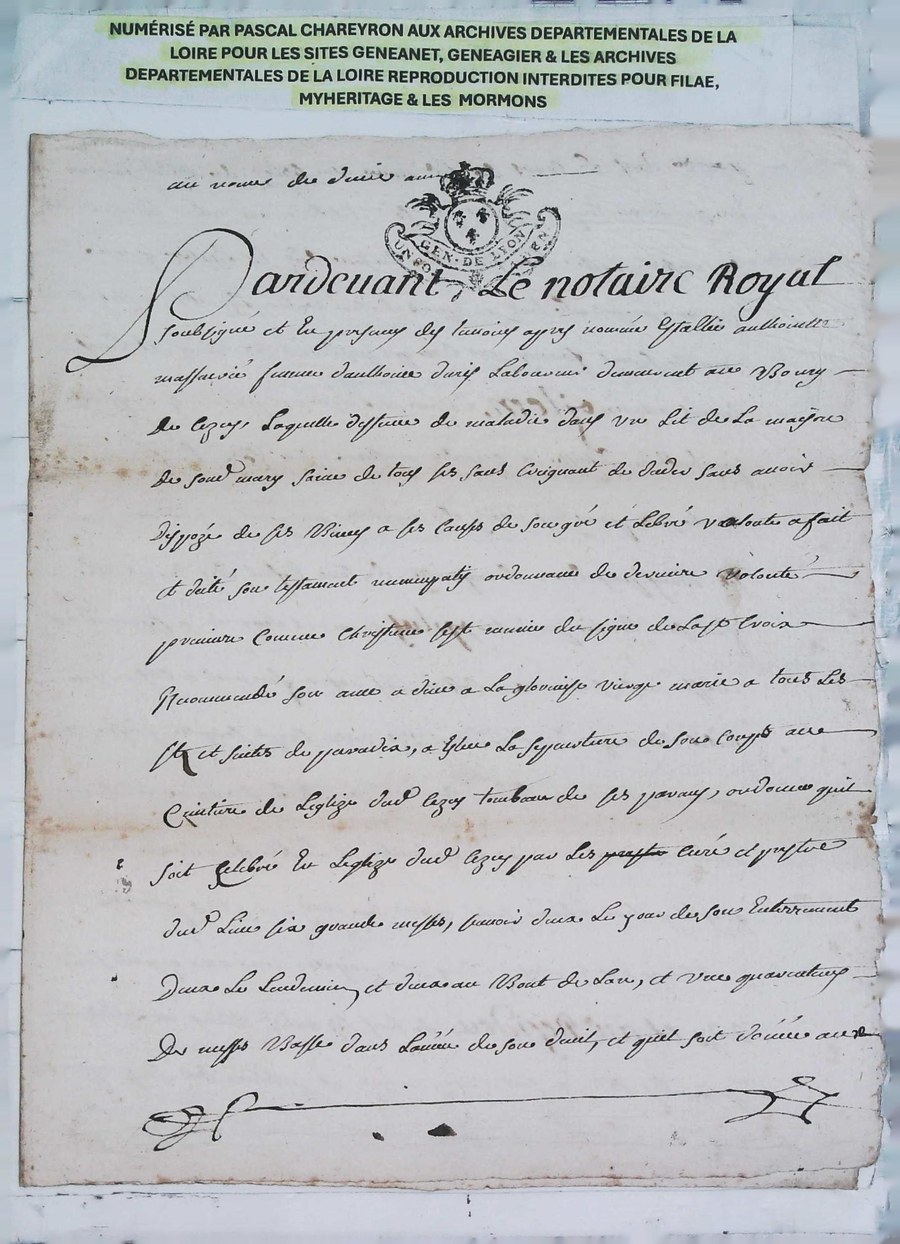 NUMÉRISÉ PAR PASCAL CHAREYRON AUX ARCHIVES DEPARTEMENTALES DE LA
LOIRE POUR LES SITES GENEANET, GENEAGIER & LES ARCHIVES
DEPARTEMENTALES DE LA LOIRE REPRODUCTION INTERDITES POUR FILAE,
MYHERITAGE & LES MORMONS
au nom de dieu
GEN. DE LYON
Pardevant Le notaire Royal
soubsigné et En presence des temoins apres nommés Estably anthoinette
femme d'anthoine Laboureur demeurant au Bourg
de Cezay Laquelle de maladie dans un Lit de La maison
de sond mary saine de tous ses sans Creignant de deceder sans avoir
dispozé de ses Biens a ses Causes de son gré et Libre volonté a fait
et dicté son testament nuncupatif ordonnance de derniere volonté
premiere Comme Chrestienne s'est munie du signe de La ste Croix
Recommendé son ame a dieu a La glorieuse vierge marie a tous Les
sts et saites de paradix, a Esleu La sepulture de son Corps au
Cimetiere de Leglize dud Cezay tombeau de ses parans, ordonne quil
soit Celebré En Leglize dud Cezay par Les curé et prestre
dud Lieu six grande messes, savoir deux Le jour de son Enterrement
deux Le Lendemin, et deux au Bout de Lan, et une quarantaine
De messes Basse dans Lannée de son deces, et quil soit donnée aux